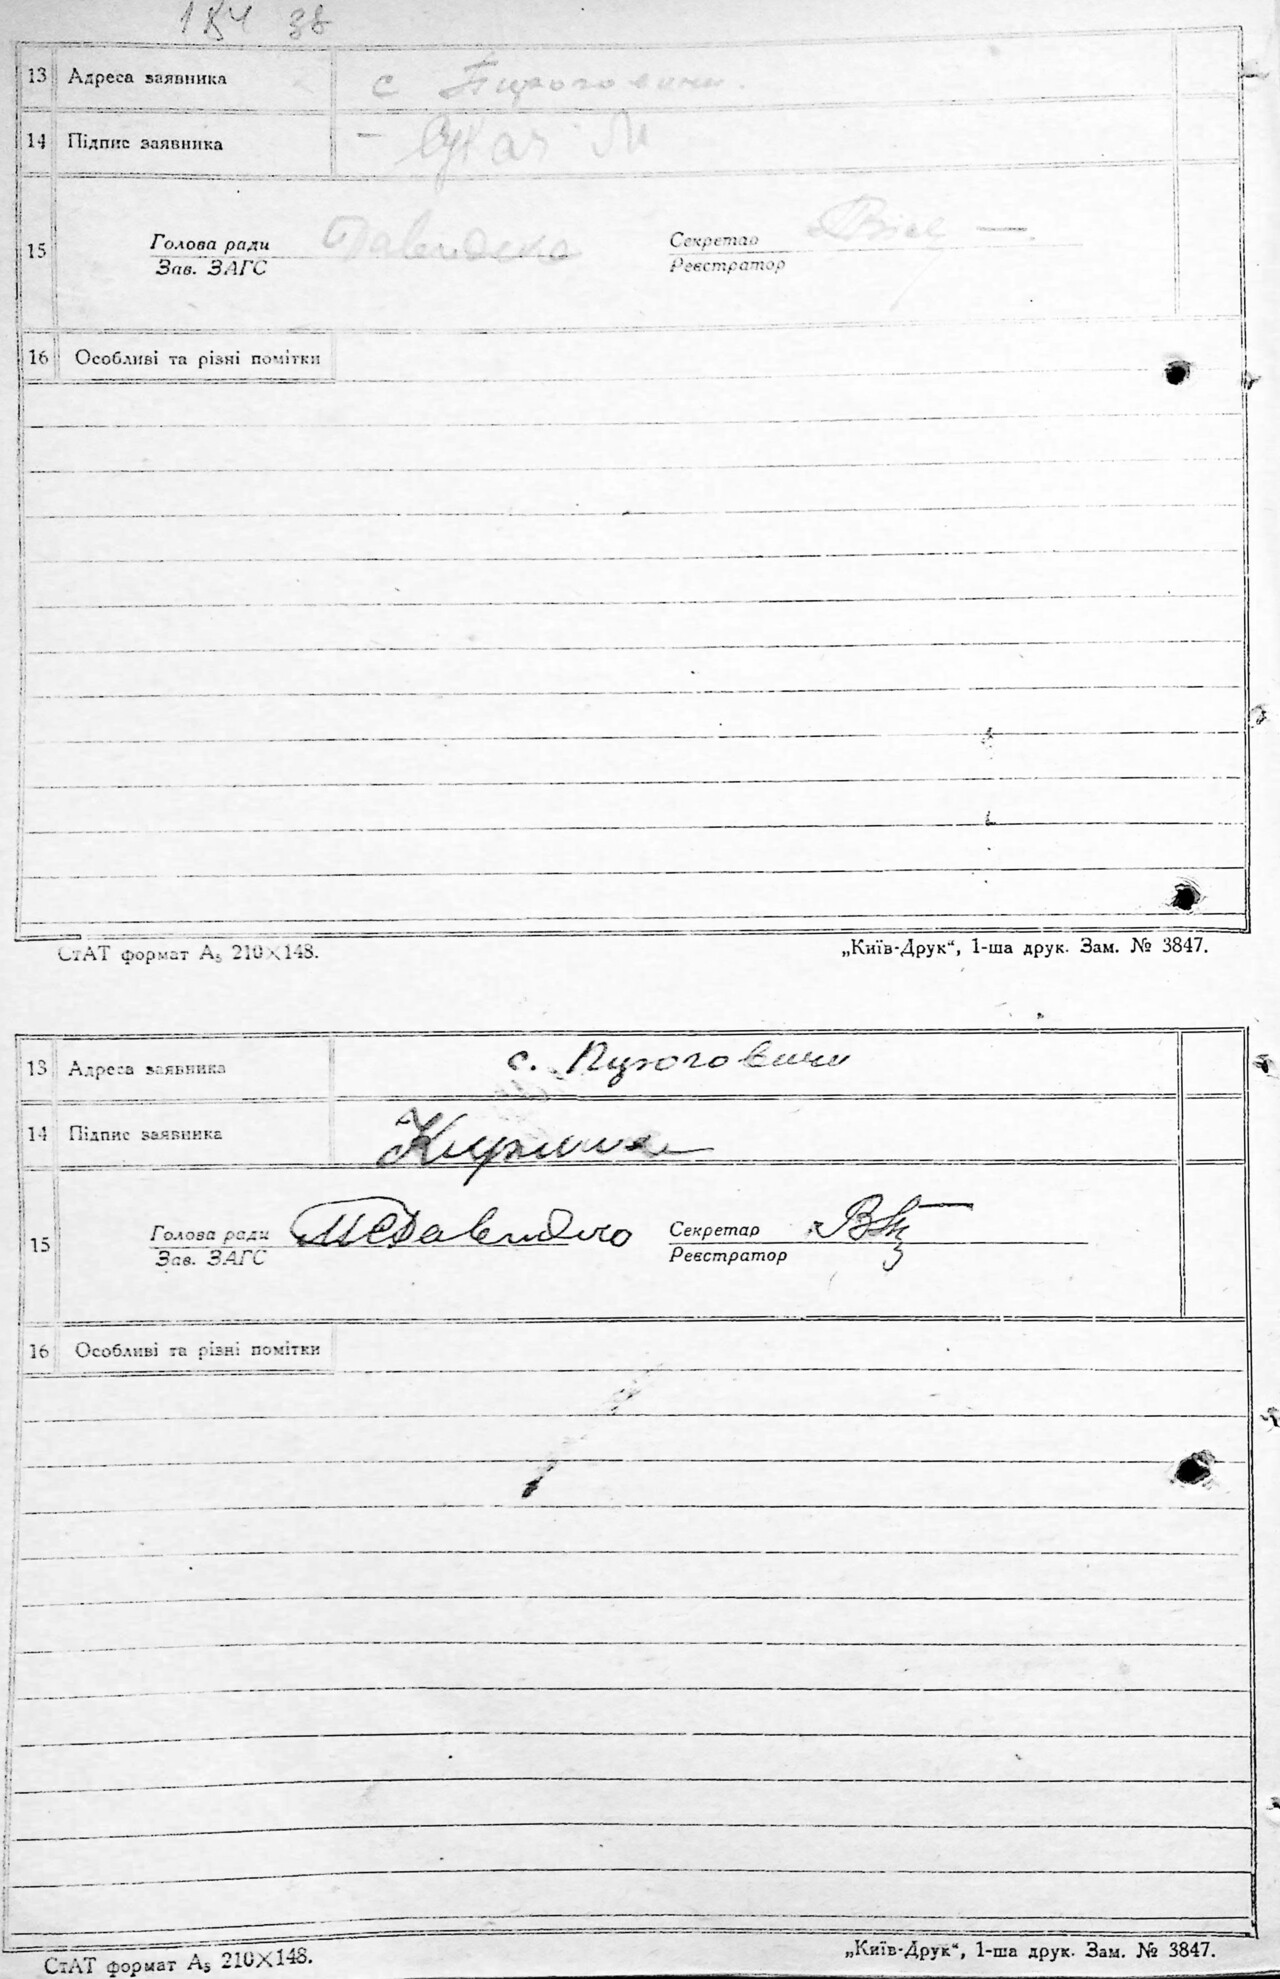 38
13 Адреса заявника с Пугоговичи.
14 Підпис заявника
15 Голова ради Давиденко Секретар
Зав. ЗАГС Реєстратор
16 Особливі та різні помітки
СтАТ формат А₅ 210×148. „Київ-Друк“, 1-ша друк. Зам. № 3847.
13 Адреса заявника с.
14 Підпис заявника
15 Голова ради Секретар
Зав. ЗАГС Реєстратор
16 Особливі та різні помітки
СтАТ формат А₅ 210×148. „Київ-Друк“, 1-ша друк. Зам. № 3847.